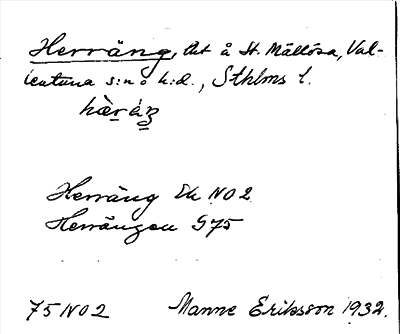 Herräng, tht å St. Mällösa, Val-
lentuna s:n o h:d., Sthlms l.
Herräng Ek NO2
Herrängen G75
75 NO2 Manne Eriksson 1932.